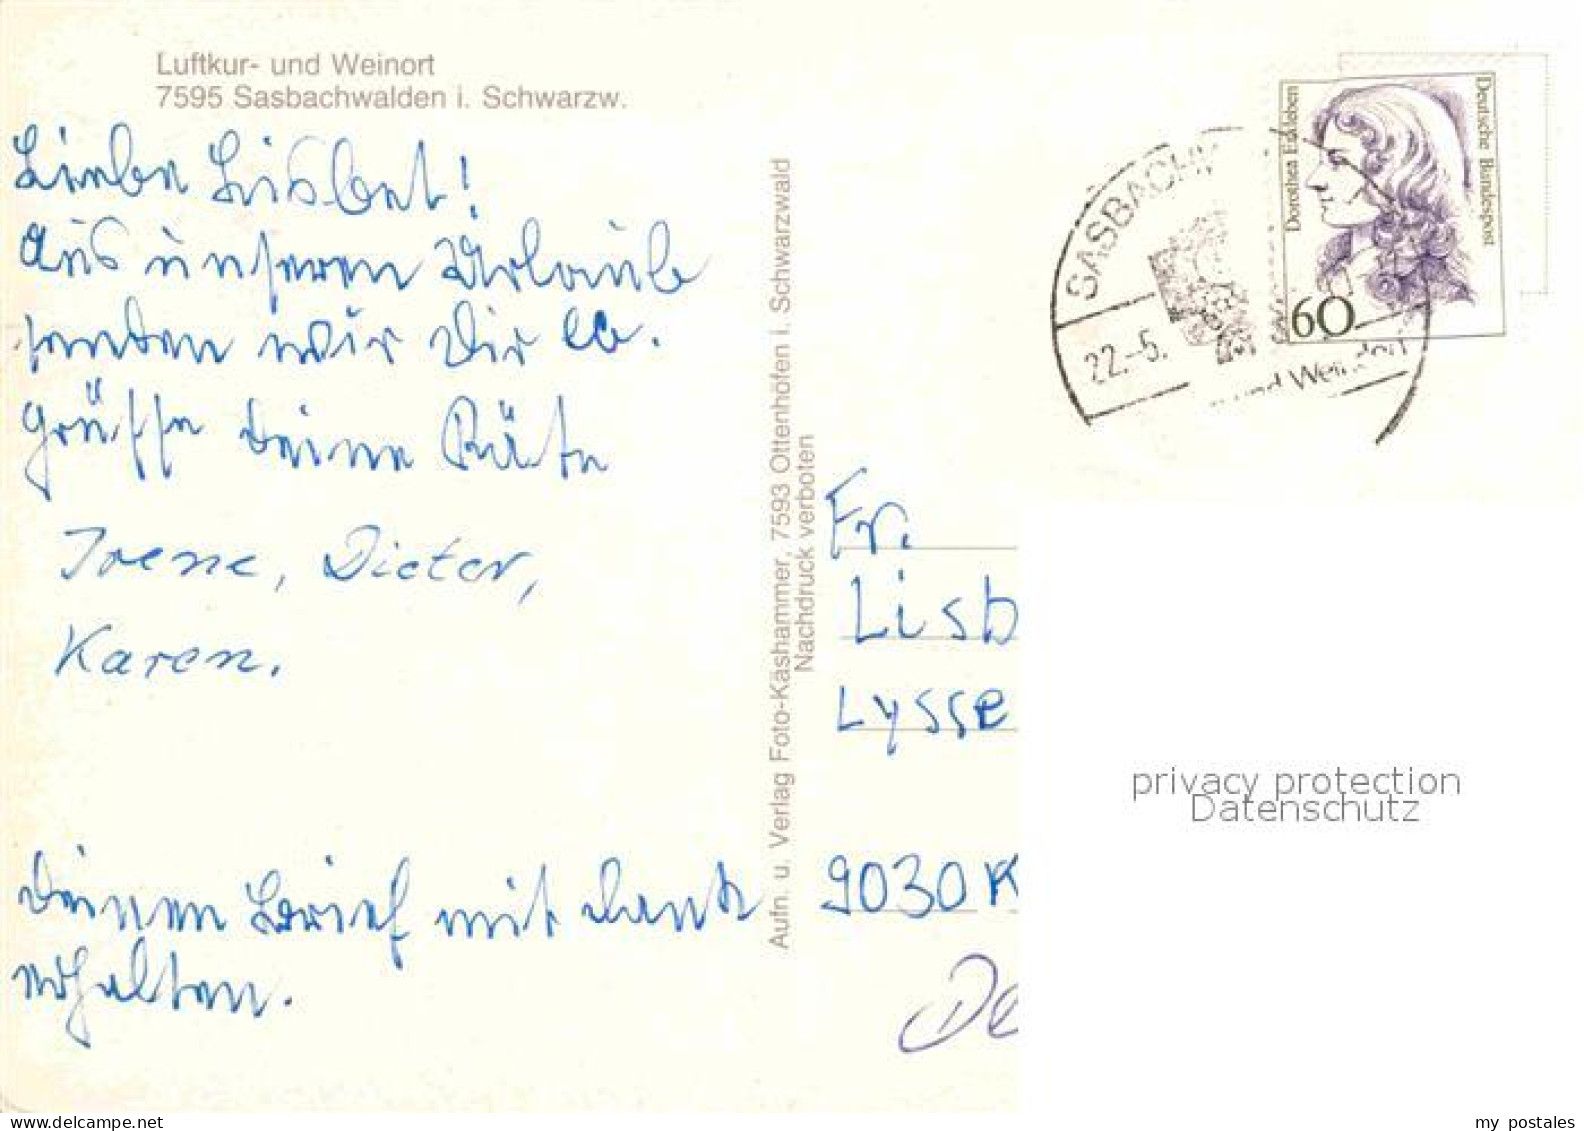 Luftkur- und Weinort
7595 Sasbachwalden i. Schwarzw.
Liebe Lisbet!
Aus unseren Urlaub
senden wir Dir
Grüsse Deine Käte
Irene, Dieter,
Karen.
Deinen Brief mit Dank
erhalten.
Aufn. u. Verlag Foto-Käshammer, 7593 Ottenhöfen i. Schwarzwald
Nachdruck verboten
SASBACHW
22.-5.
und Weindorf
Dorothea Erxleben
Deutsche Bundespost
60
Fr.
Lisb
Lysse
9030 K
De
privacy protection
Datenschutz
my postales